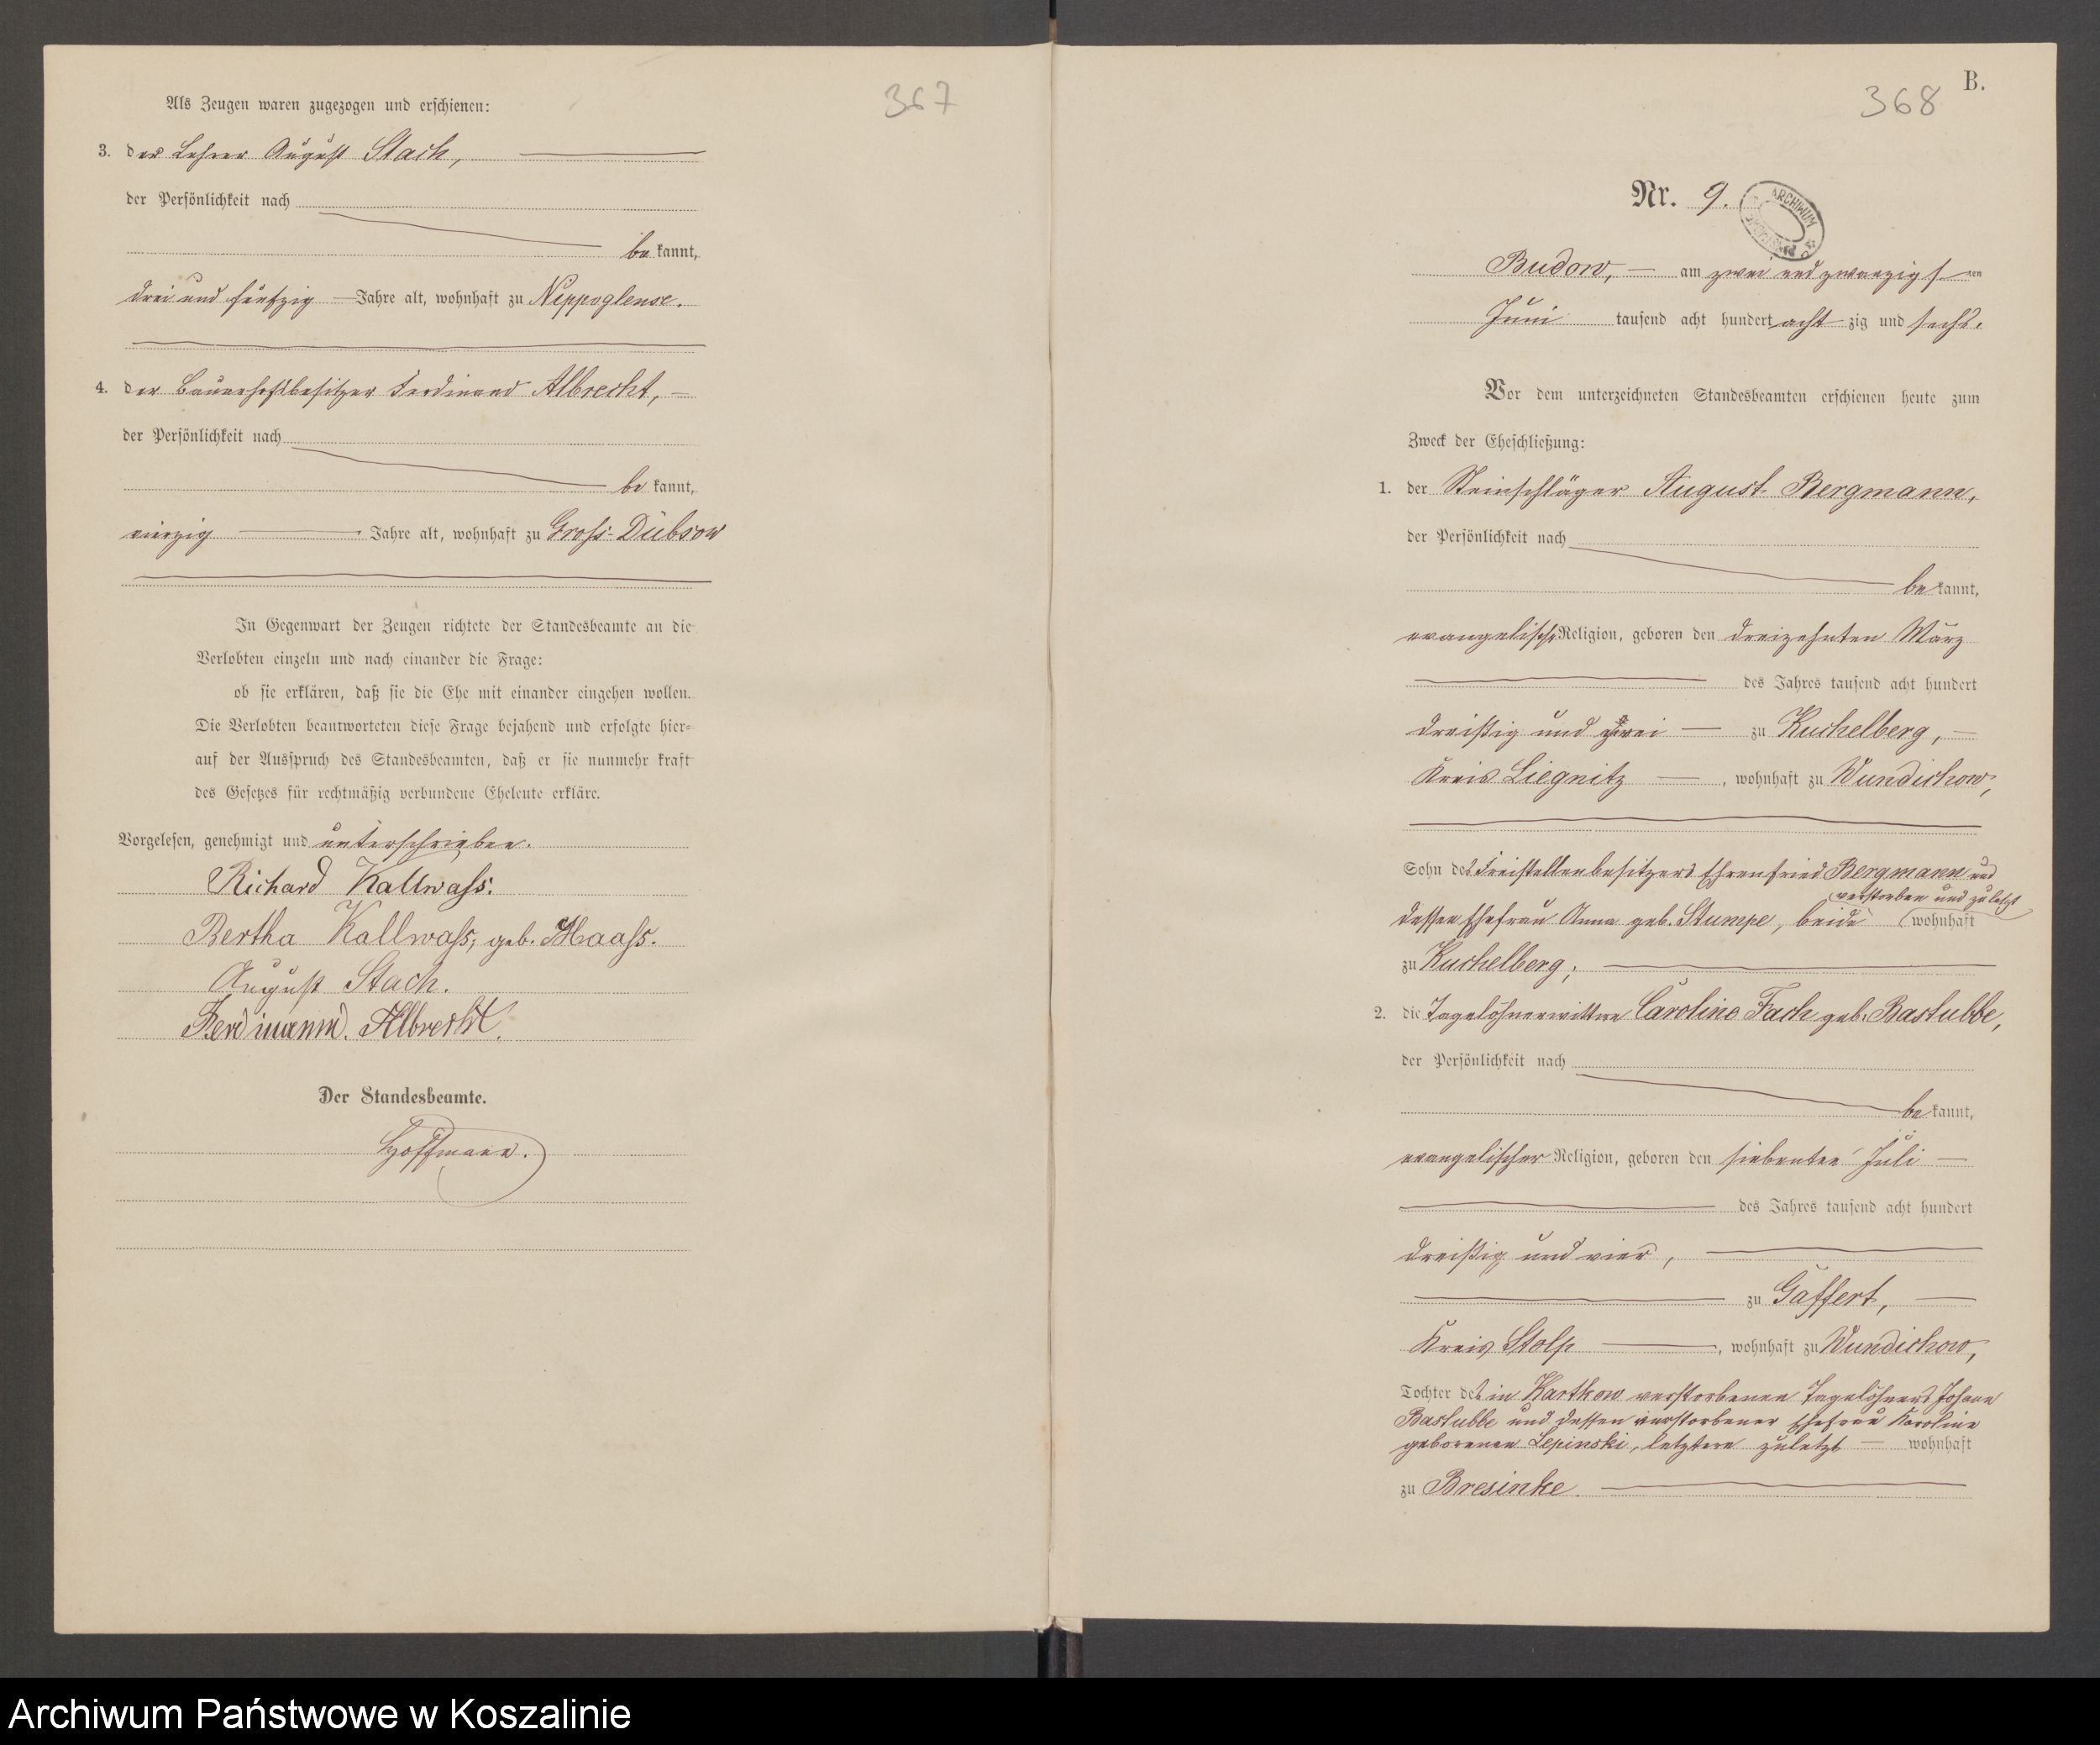 367
Als Zeugen waren zugezogen und erschienen:
3. der Lehrer August Stach,
der Persönlichkeit nach
be kannt,
drei und fünfzig Jahre alt, wohnhaft zu Neppoglense.
4. der Bauerhofsbesitzer Ferdinand Albrecht,
der Persönlichkeit nach
be kannt,
vierzig Jahre alt, wohnhaft zu Gross-Dübsow
In Gegenwart der Zeugen richtete der Standesbeamte an die
Verlobten einzeln und nach einander die Frage:
ob sie erklären, daß sie die Ehe mit einander eingehen wollen.
Die Verlobten beantworteten diese Frage bejahend und erfolgte hier-
auf der Ausspruch des Standesbeamten, daß er sie nunmehr kraft
des Gesetzes für rechtmäßig verbundene Eheleute erkläre.
Vorgelesen, genehmigt und unterschrieben.
Richard Kallwass.
Bertha Kallwass, geb. Maass.
August Stach.
Ferdinannd. Albrecht.
Der Standesbeamte.
Hoffmann.
B.
368
Nr. 9.
ARCHIWUM
Budow, am zwei und zwanzigsten
Juni tausend acht hundert acht zig und sechs.
Vor dem unterzeichneten Standesbeamten erschienen heute zum
Zweck der Eheschließung:
1. der Steinschläger August Bergmann,
der Persönlichkeit nach
be kannt,
evangelischer Religion, geboren den dreizehnten März
des Jahres tausend acht hundert
dreißig und zwei zu Kuchelberg,
Kreis Liegnitz, wohnhaft zu Wundichow,
Sohn des Freistellenbesitzers Ehrenfried Bergmann und
verstorben und zuletzt
dessen Ehefrau Anna geb. Stumpe, beide wohnhaft
zu Kuchelberg;
2. die Tagelöhnerwittwe Caroline Fach geb. Bastubbe,
der Persönlichkeit nach
be kannt,
evangelischer Religion, geboren den siebenten Juli
des Jahres tausend acht hundert
dreißig und vier,
zu Gaffert,
Kreis Stolp, wohnhaft zu Wundichow,
Tochter des in Kartkow verstorbenen Tagelöhners Johann
Bastubbe und dessen verstorbener Ehefrau Karoline
geborenen Lepinski, letztere zuletzt wohnhaft
zu Bresinke
Archiwum Państwowe w Koszalinie